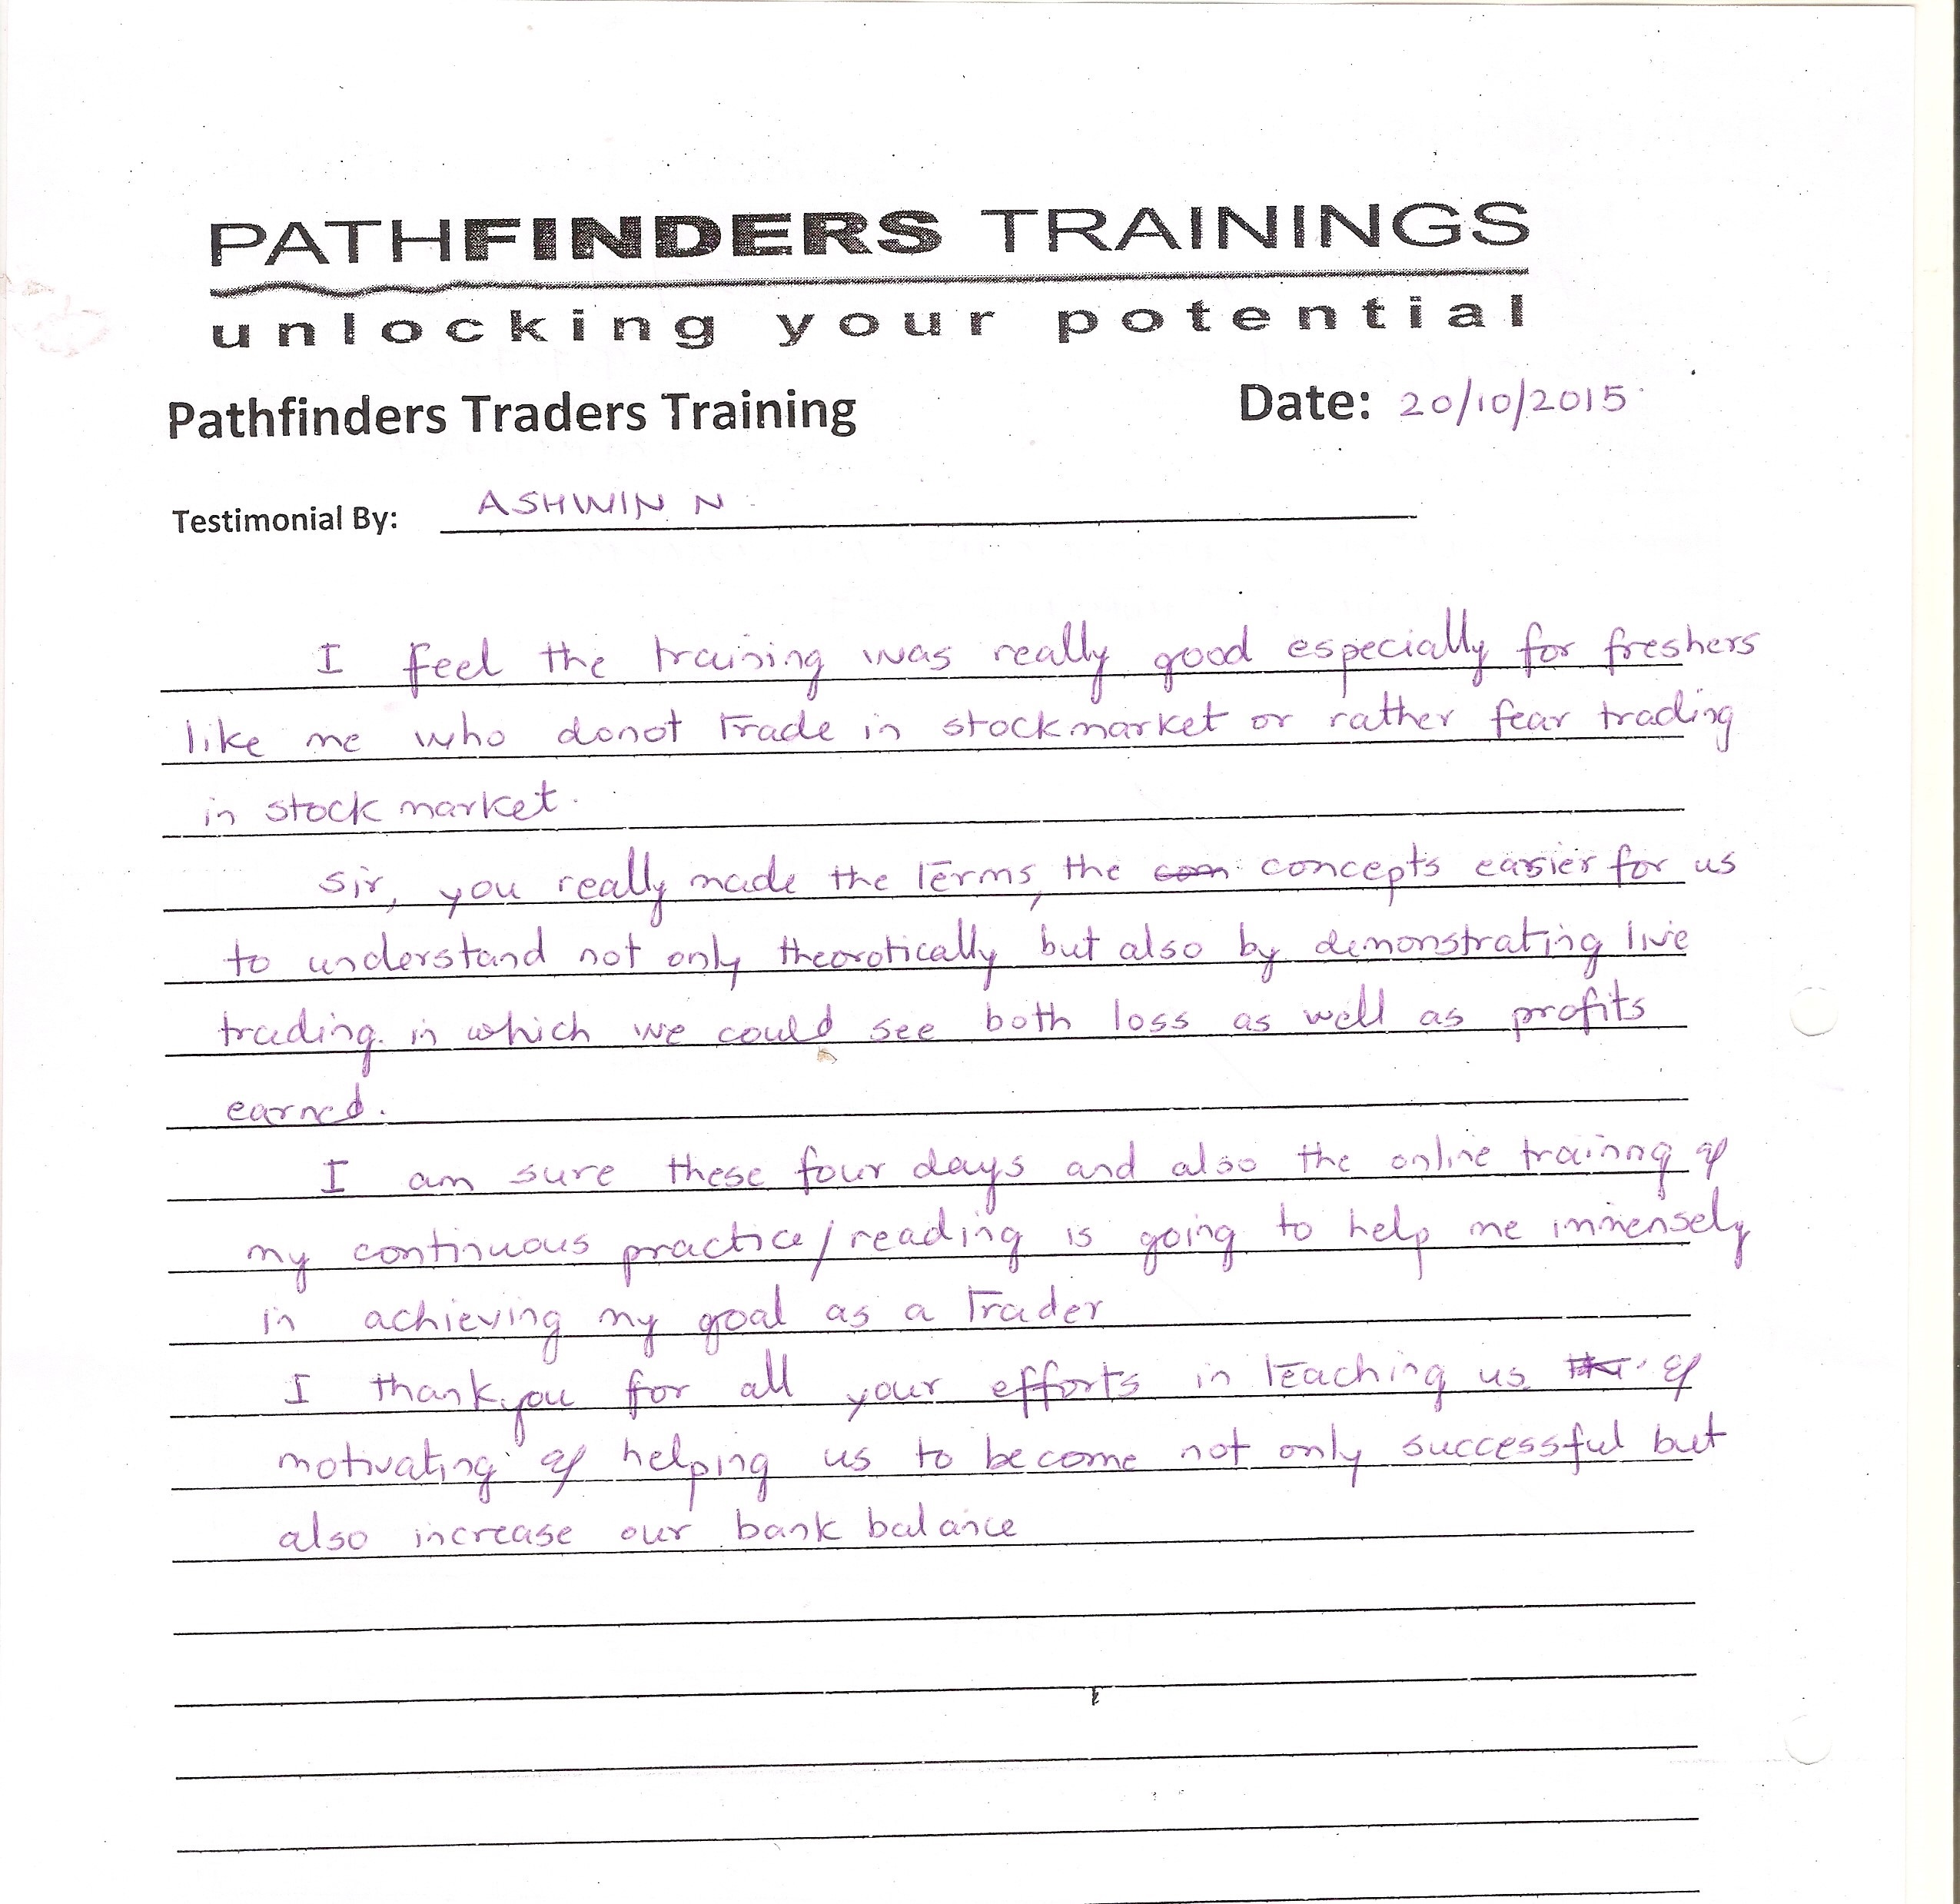 PATHFINDERS TRAININGS
unlocking your potential
Pathfinders Traders Training Date: 20/10/2015
Testimonial By: ASHWIN N
I feel the training was really good especially for freshers
like me who donot trade in stockmarket or rather fear trading
in stock market.
Sir, you really made the terms, the com concepts easier for us
to understand not only theorotically but also by demonstrating live
trading. in which we could see both loss as well as profits
earned.
I am sure these four days and also the online trainng &
my continuous practice/reading is going to help me immensely
in achieving my goal as a Trader
I thankyou for all your efforts in teaching us &
motivating & helping us to become not only successful but
also increase our bank balance